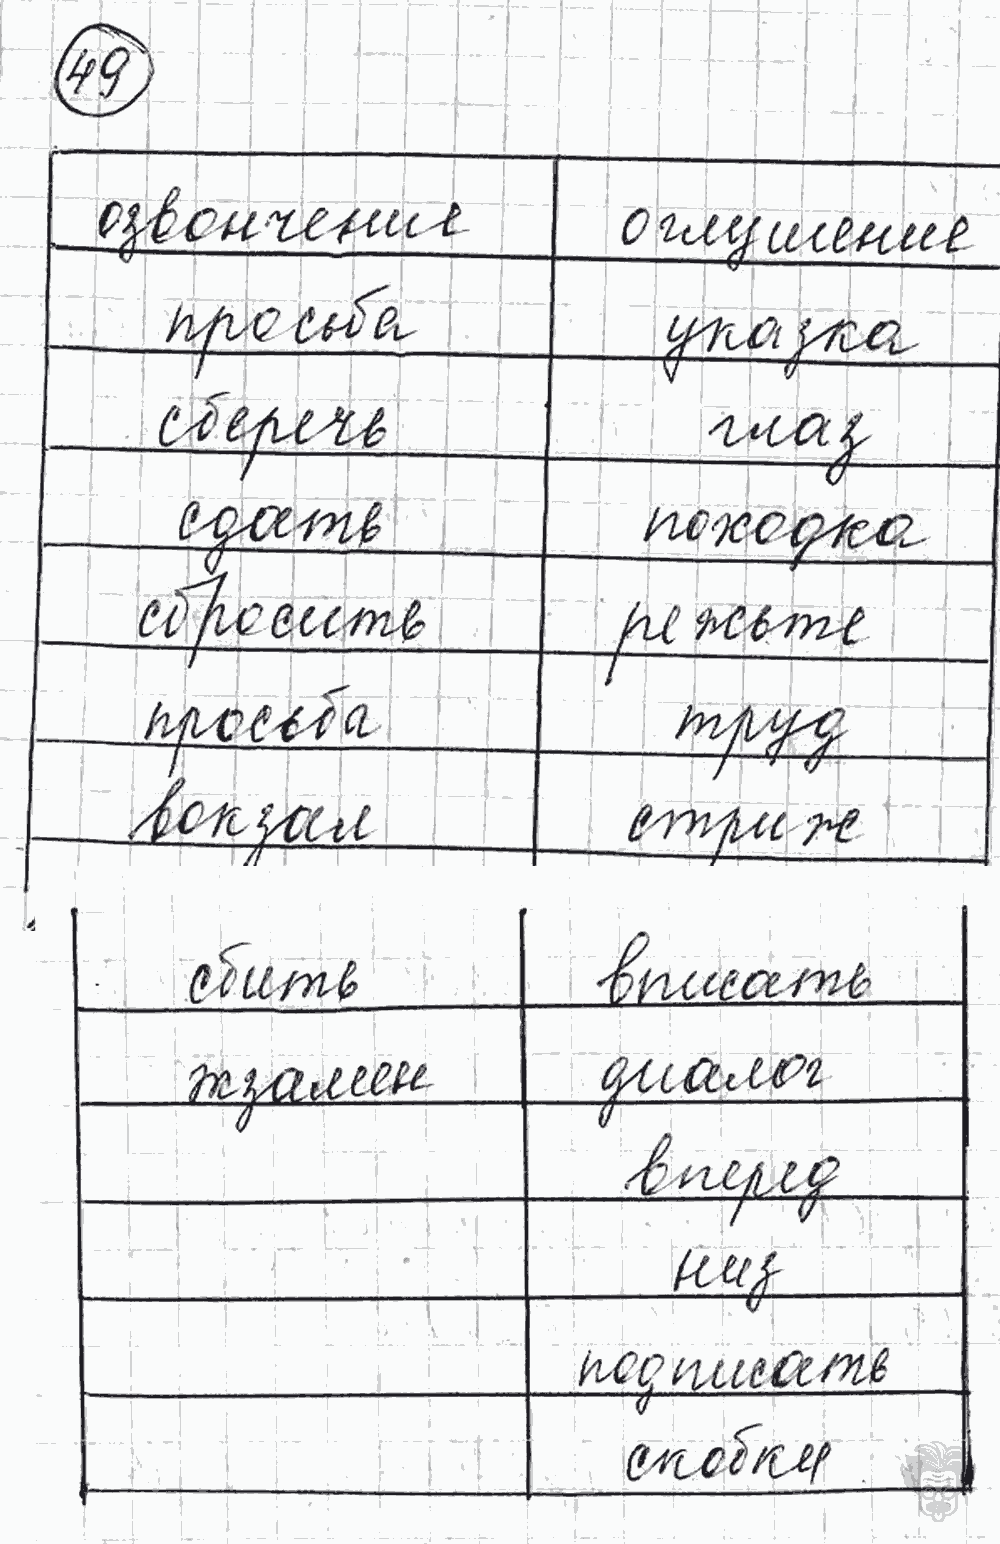 49
озвончение оглушение
просьба указка
сберечь глаз
сдать походка
сбросить режьте
просьба труд
вокзал стриж
сбить вписать
экзамен диалог
вперед
низ
подписать
скобки